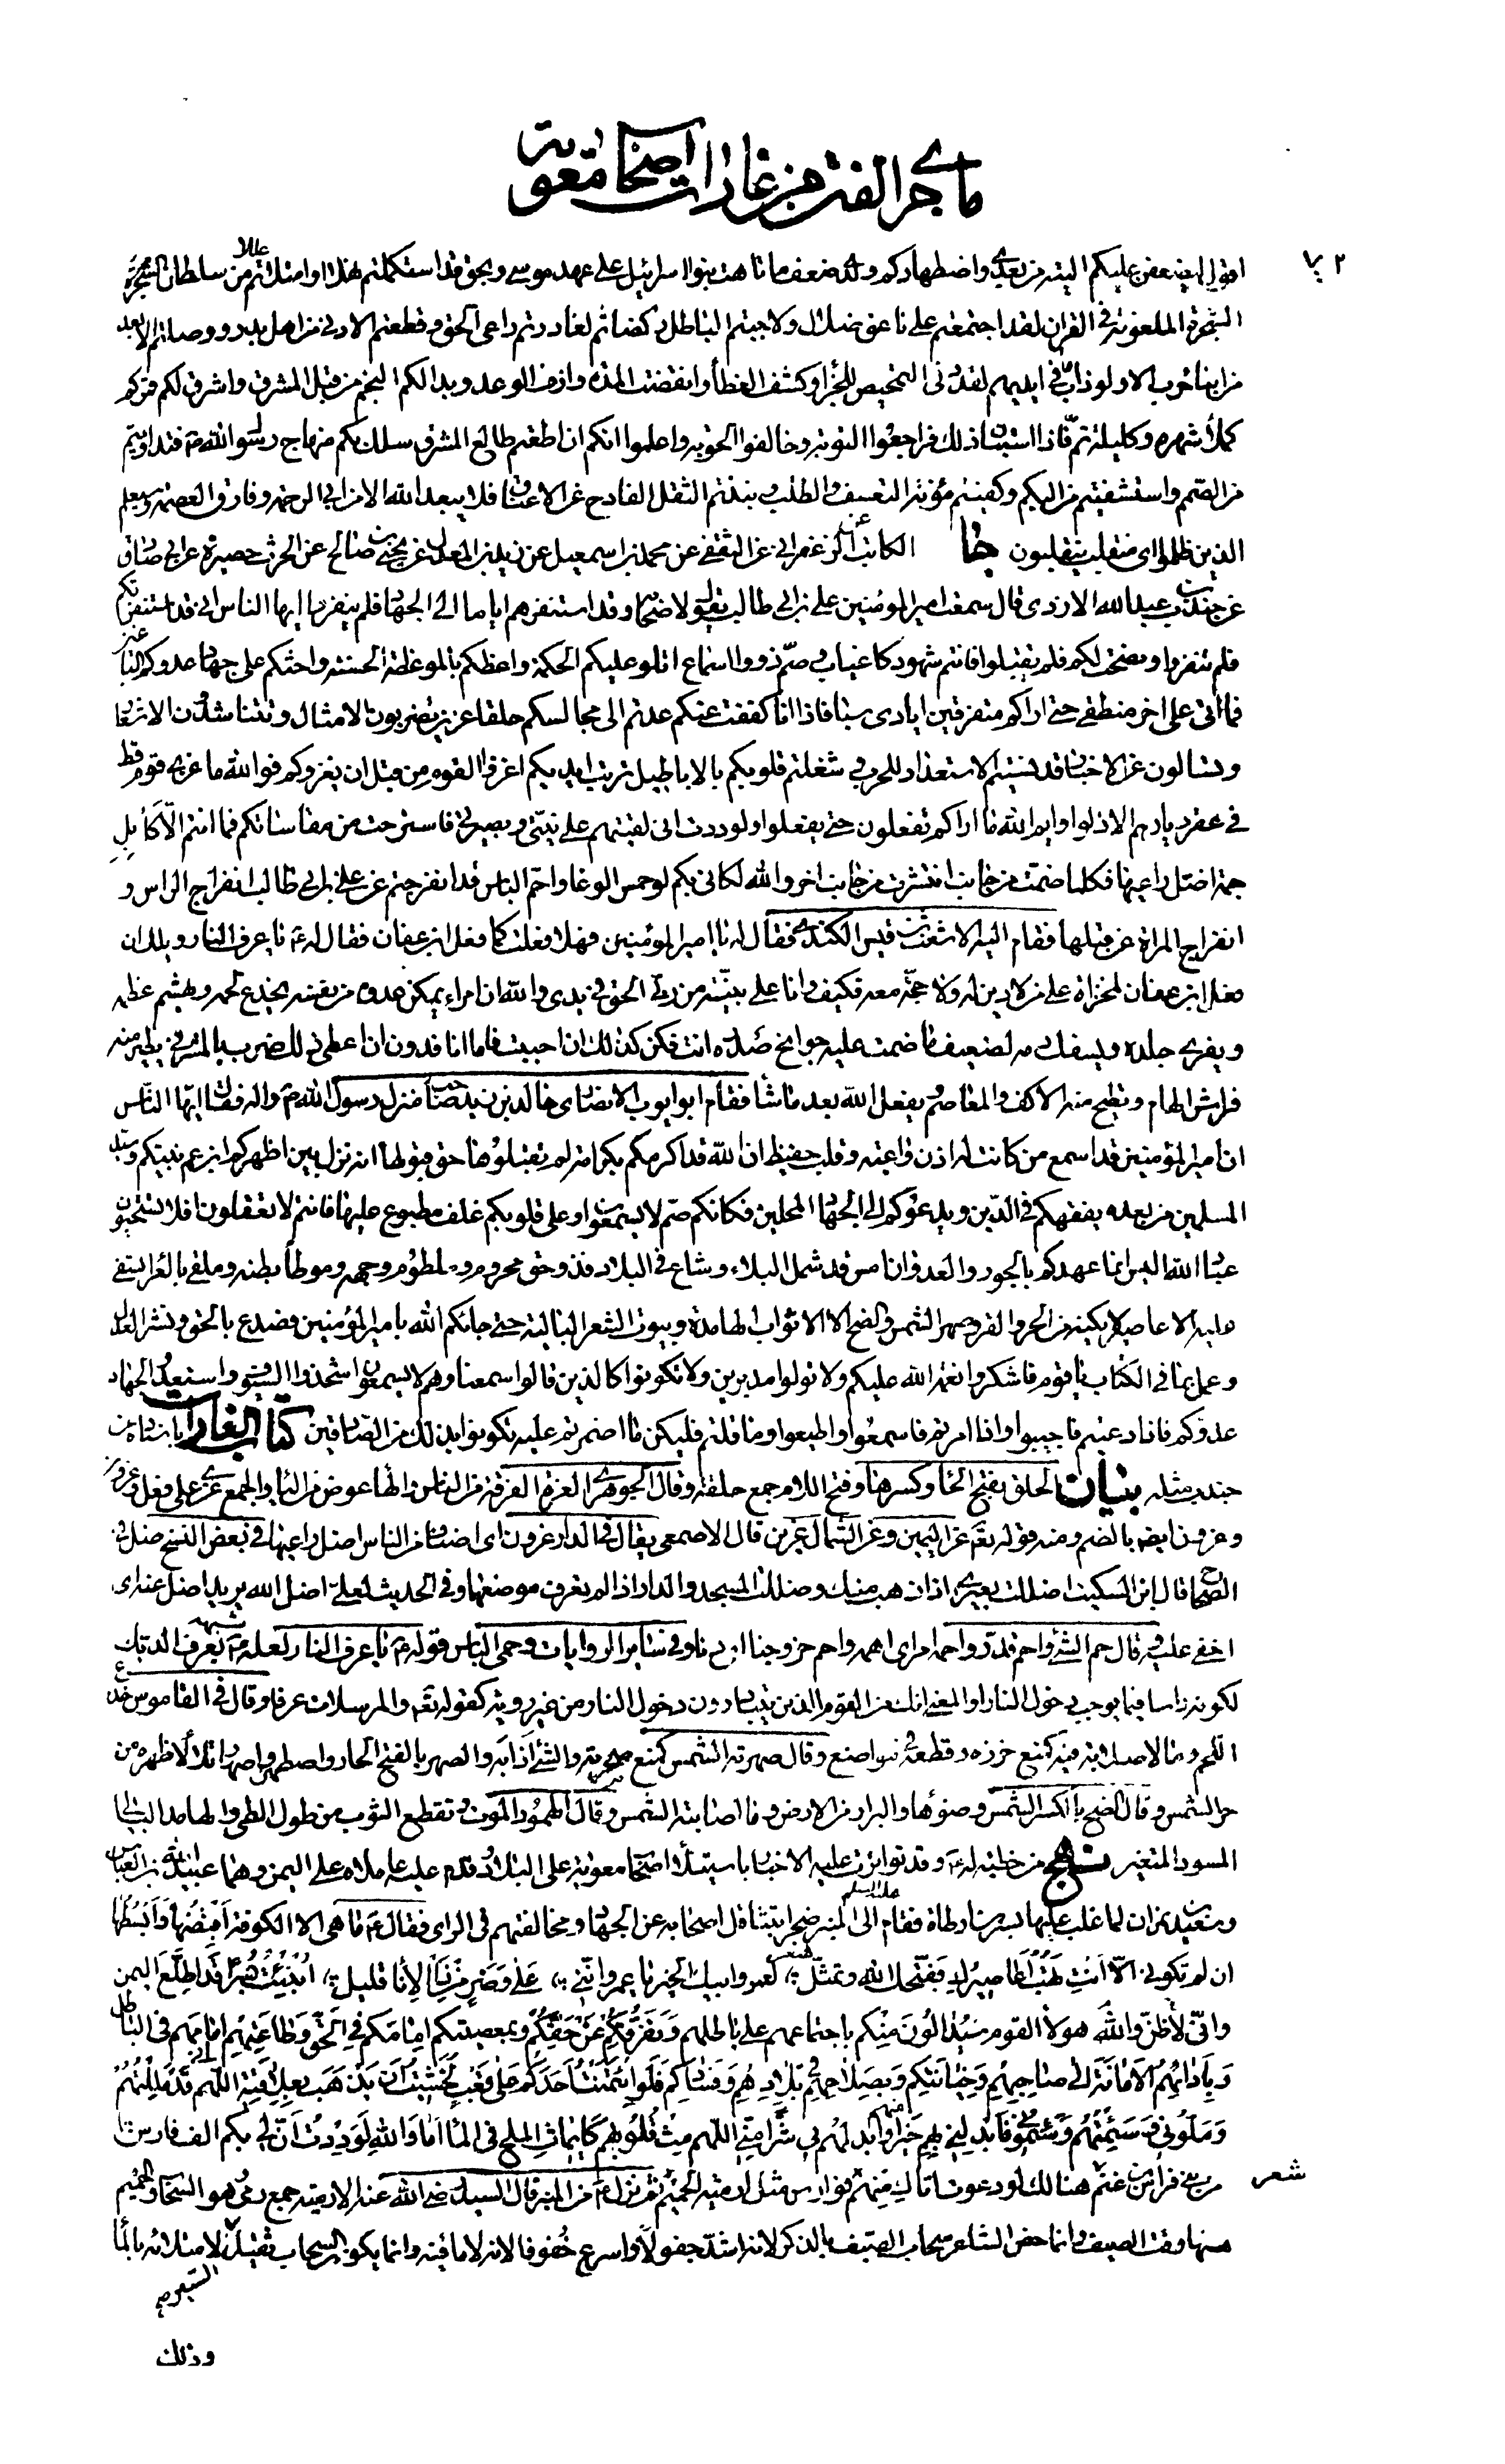 ما جرى الفتن من غارات اصحاب معوية
٧٠٢
اقول ليضعفن عليكم التيه من بعدي واضطهادكم ولدي ضعف ما تاهت بنوا اسرائيل على عهد موسى وبحق قد استكملتم نهلا وامتلأتم عللا من سلطان الشجرة
الشجرة الملعونة في القران لقد اجتمعتم على ناعق ضلال ولاجبتم الباطل ركضا ثم لغادرتم داعي الحق وقطعتم الادنى من اهل بدر ووصلتم الابعد
من ابناء حرب الا ولو ذاب ما في ايديهم لقد دنى التمحيص للجزاء وكشف الغطاء وانقضت المدة وازف الوعد وبدا لكم النجم من قبل المشرق واشرق لكم قمركم
كملأ شهره وكليلة تم فاذا استبان ذلك فراجعوا التوبة وخالفوا الحوبة واعلموا انكم ان اطعتم طالع المشرق سلك بكم منهاج رسول الله ص فتداويتم
من الصمم واستشفيتم من البكم وكفيتم مؤنة التعسف والطلب ونبذتم الثقل الفادح عن الاعناق فلا يبعد الله الا من ابى الرحمة وفارق العصمة وسيعلم
الذين ظلموا اي منقلب ينقلبون جا الكاتب عن الزعفراني عن الثقفي عن محمد بن اسمعيل عن زيد بن المعدل عن يحيى بن صالح عن الحرث بن حصيرة عن ابي صادق
عن جندب بن عبد الله الازدي قال سمعت امير المؤمنين علي بن ابي طالب يقول لاصحابه وقد استنفرهم اياما الى الجهاد فلم ينفروا ايها الناس اني قد استنفرتكم
فلم تنفروا ونصحت لكم فلم تقبلوا فانتم شهود كاغياب وصم ذووا اسماع اتلو عليكم الحكمة واعظكم بالموعظة الحسنة واحثكم على جهاد عدوكم الباغين
فما اتى على اخر منطقي حتى اراكم متفرقين ايادي سبا فاذا انا كففت عنكم عدتم الى مجالسكم حلقا عزين تضربون الامثال وتتناشدون الاشعار
وتسالون عن الاخبار قد نسيتم الاستعداد للحرب وشغلتم قلوبكم بالاباطيل تربت ايديكم اغزوا القوم من قبل ان يغزوكم فوالله ما غزي قوم قط
في عقر ديارهم الا ذلوا وايم الله ما اراكم تفعلون حتى يفعلوا ولوددت اني لقيتهم على نيتي وبصيرتي فاسترحت من مقاساتكم فما انتم الا كابل
جمة اضل راعيها فكلما ضمت من جانب انتشرت من جانب اخر والله لكاني بكم لو حمس الوغا واحم الباس قد انفرجتم عن علي بن ابي طالب انفراج الراس و
انفراج المراة عن قبلها فقام اليه الاشعث بن قيس الكندي فقال له يا امير المؤمنين فهلا فعلت كما فعل ابن عفان فقال له ع يا عرف النار ويلك ان
فعل ابن عفان لمخزاة على من لا دين له ولا حجة معه فكيف وانا على بينة من ربي الحق في يدي والله ان امرء يمكن عدوه من نفسه يخذع لحمه ويهشم عظمه
ويفري جلده ويسفك دمه لضعيف ما ضمت عليه جوانح صدره انت فكن كذلك ان احببت فاما انا فدون ان اعطي ذلك ضرب بالمشرفي يطير منه
فراش الهام وتطيح منه الاكف والمعاصم ويفعل الله بعد ما شاء فقام ابو ايوب الانصاري خالد بن زيد صاحب منزل رسول الله ص واله فقال ايها الناس
ان امير المؤمنين قد اسمع من كانت له اذن واعية وقلب حفيظ ان الله قد اكرمكم بكرامة لم تقبلوها حق قبولها انه نزل بين اظهركم ابن عم نبيكم وسيد
المسلمين من بعده يفقهكم في الدين ويدعوكم الى الجهاد المحلين فكانكم صم لا يسمعون او على قلوبكم غلف مطبوع عليها فانتم لا تعقلون افلا تستحيون
عباد الله اليس انما عهدكم بالجور والعدوان امس قد شمل البلاء وشاع في البلاد فذو حق محروم وملطوم وجهه وموطأ بطنه وملقى بالعراء تسفي
عليه الاعاصير لا يكنه من الحر والقر وصهر الشمس والضح الا الاثواب الهامدة وبيوت الشعر البالية حتى جاءكم الله بامير المؤمنين فصدع بالحق ونشر العدل
وعمل بما في الكتاب يا قوم فاشكروا نعمة الله عليكم ولا تولوا مدبرين ولا تكونوا كالذين قالوا سمعنا وهم لا يسمعون اشحذوا السيوف واستعدوا لجهاد
عدوكم فاذا دعيتم فاجيبوا واذا امرتم فاسمعوا واطيعوا وما قلتم فليكن ما اضمرتم عليه تكونوا بذلك من الصادقين كتاب الغارات باسناده عن
جندب مثله بيان الحلق بفتح الحاء وكسرها وفتح اللام جمع حلقة وقال الجوهري العزة الفرقة من الناس والهاء عوض من الياء والجمع عزى على فعل وعزون
وعزون ايضا بالضم ومنه قوله تع عن اليمين وعن الشمال عزين قال الاصمعي يقال في الدار عزون اي اصناف من الناس اضل راعيها في بعض النسخ ضل في
الصحاح قال ابن السكيت اضللت بعيري اذا ذهب منك وضللت المسجد والدار اذا لم تعرف موضعهما وفي الحديث لعلي اضل الله يريد اضل عنه اي
اخفى عليه وقال حم الشئ واحم قدر واحمه امر اي اهمه واحم خروجنا اي دنا وفي سائر الروايات وحمى الباس قوله ع يا عرف النار لعله ع شبهه بعرف الديك
لكونه راسا فيما يوجب دخول النار او المعنى انك من القوم الذين يتبادرون دخول النار من غير روية كقوله تع والمرسلات عرفا وقال في القاموس خذع
اللحم وما لا صلابة فيه كمنع خرزه وقطعه في مواضع وقال صهرته الشمس كمنع صحرته والشئ اذابه والصهر بالفتح الحار واصطهر واصهار تلألأ ظهره من
حر الشمس وقال الضح بالكسر الشمس وضوئها والبراز من الارض وما اصابته الشمس وقال الهمود الموت وتقطع الثوب من طول الطي والهامد البالي
المسود المتغير نهج من خطبة له ع وقد تواترت عليه الاخبار باستيلاء اصحاب معوية على البلاد وقدم عليه عاملاه على اليمن وهما عبيد الله بن العباس
وسعيد بن نمران لما غلب عليهما بسر بن ارطاة فقام عليه السلم الى المنبر ضجرا بتثاقل اصحابه عن الجهاد ومخالفتهم في الراي فقال ع ما هي الا الكوفة اقبضها وابسطها
ان لم تكوني الا انت تهب اعاصيرك فقبحك الله وتمثل شعر لعمر ابيك الخير يا عمرو انني على وضر من ذا الاناء قليل انبئت بسرا قد اطلع اليمن
واني لاظن والله هولاء القوم سيدالون منكم باجتماعهم على باطلهم وتفرقكم عن حقكم وبمعصيتكم امامكم في الحق وطاعتهم امامهم في الباطل
وبادائهم الامانة الى صاحبهم وخيانتكم وبصلاحهم في بلادهم وفسادكم فلو ائتمنت احدكم على قعب لخشيت ان يذهب بعلاقته اللهم قد مللتهم
وملوني وسئمتهم وسئموني فابدلني بهم خيرا منهم وابدلهم بي شرا مني اللهم مث قلوبهم كما يماث الملح في الماء اما والله لوددت ان لي بكم الف فارس
من بني فراس بن غنم شعر هنالك لو دعوت اتاك منهم فوارس مثل ارمية الحميم ثم نزل ع من المنبر قال السيد رضي الله عنه الارمية جمع رمي وهو السحاب والحميم
ههنا وقت الصيف وانما خص الشاعر سحاب الصيف بالذكر لانه اشد جفولا واسرع خفوفا لانه لا ماء فيه وانما يكون السحاب ثقيل السير لامتلائه بالماء
وذلك